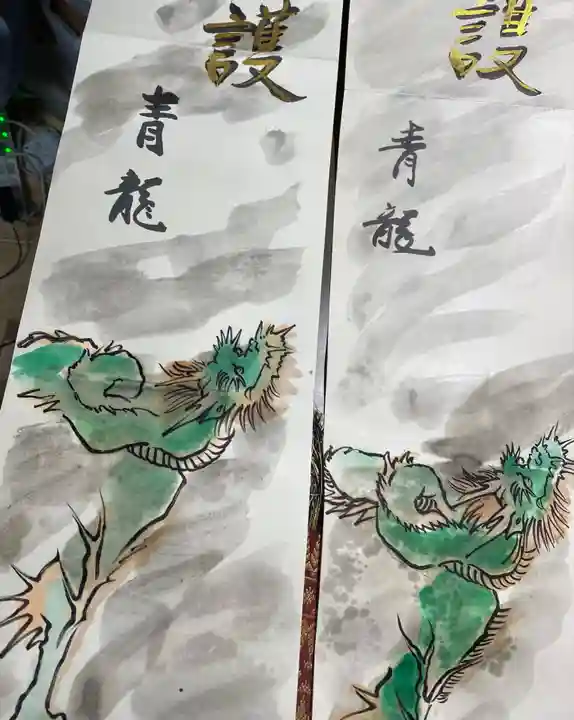 護
青
龍
護
青
龍